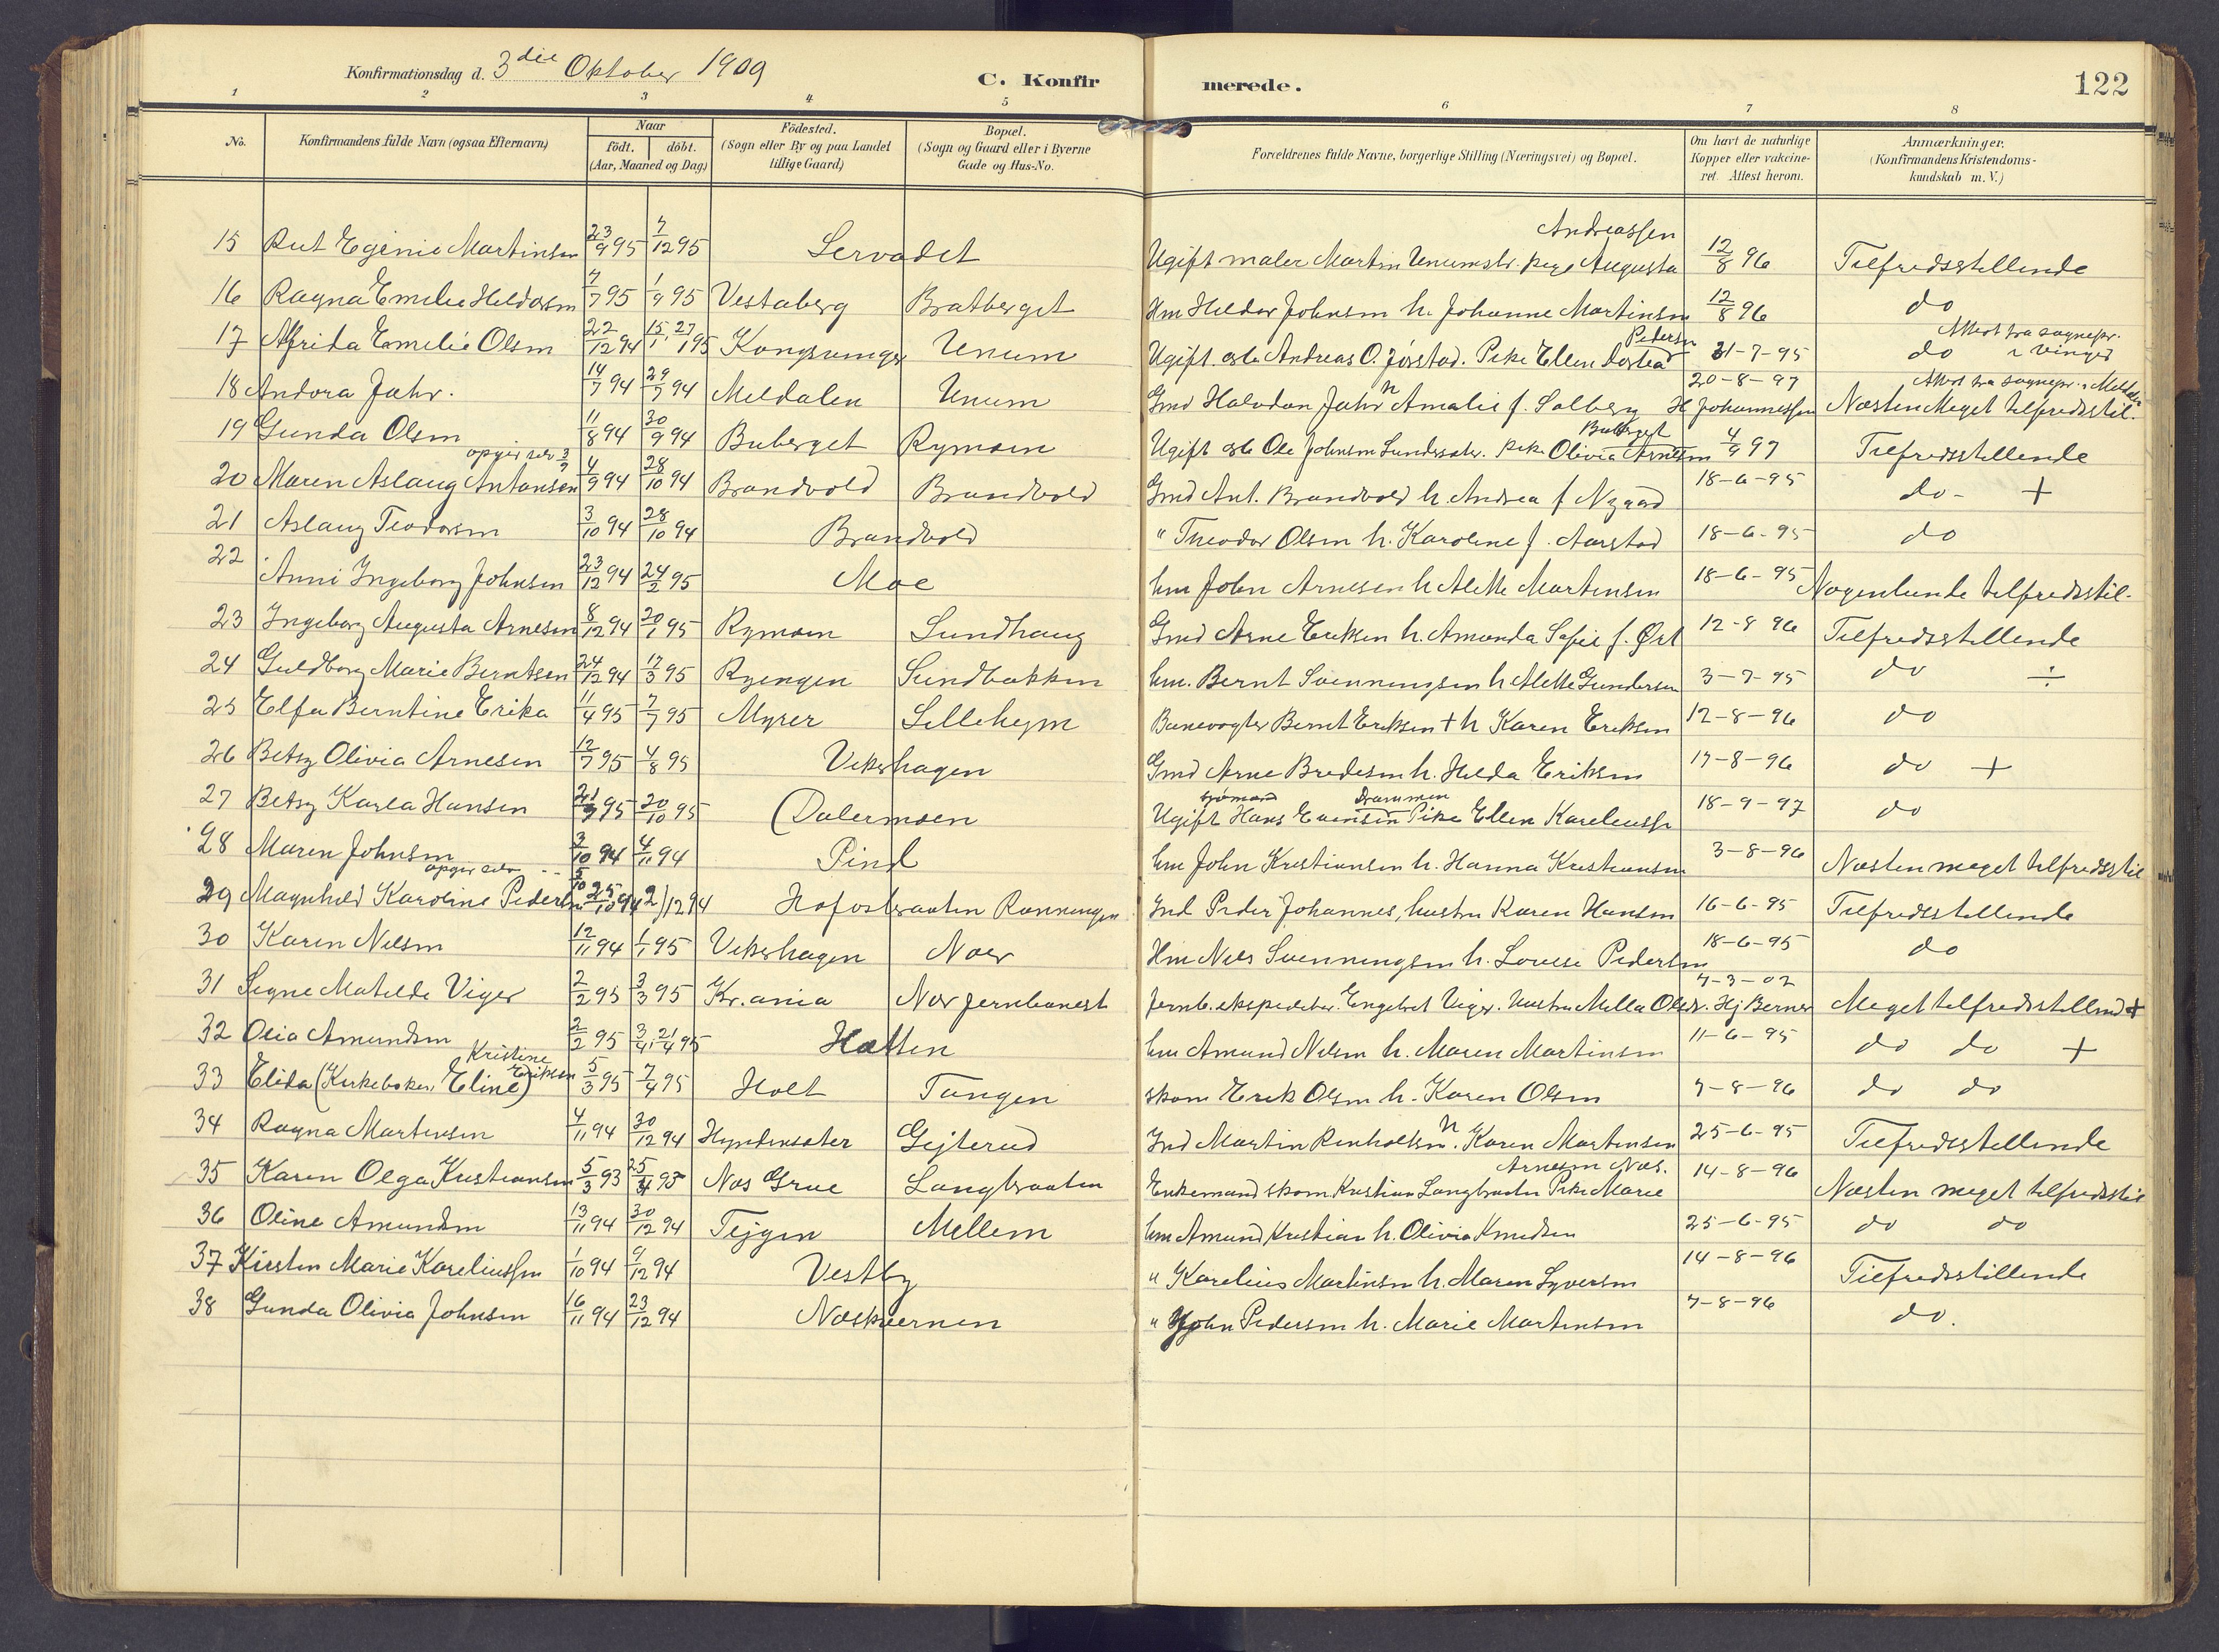 Konfirmationsdag d. 3die Oktober 1909 C. Konfirmerede. 122
1 2 3 4 5 6 7 8
No. Konfirmandens fulde Navn (ogsaa Efternavn) Naar födt. döbt. (Aar, Maaned og Dag) Födested. (Sogn eller By og paa Landet tillige Gaard) Bopæl. (Sogn og Gaard eller i Byerne Gade og Hus-No. Forældrenes fulde Navne, borgerlige Stilling (Næringsvei) og Bopæl. Om havt de naturlige Kopper eller vakcineret. Attest herom. Anmærkninger. (Konfirmandens Kristendomskundskab m. V.)
15 Rut Eginie Martinsen 23/9 95 7/12 95 Servadet Ugift maler Martin Unumstr. pige Augusta Andreassen 12/8 96 Tilfredsstillende
16 Ragna Emelie Heldorsen 7/7 95 1/9 95 Vestaberg Bratberget Hm Heldor Johnsen h. Johanne Martinsen 12/8 96 do
17 Alfrida Emelie Olsen 22/12 94 15/1, 27/1 95 Kongsvinger Unum Ugift Andreas O. Jørstad. Pike Ellen Dortea Pedersen 31-7-95 do Attest fra sognepr. i Vinger
18 Andora Jahr. 14/7 94 29/7 94 Meldalen Unum Gmd Halvdan Jahr h Amalie f. Solberg 20-8-97 H Johannessen Næsten Meget tilfredsstil. Attest fra sognepr. i Meldalen
19 Gunda Olsen 11/8 94 30/9 94 Buberget Rymoen Ugift Ole Johnsen Sundsæter. pike Olivia Arnesen Buberget 4/9 97 Tilfredsstillende
20 Maren Aslaug Antonsen opgir selv 3/9 4/9 94 28/10 94 Brandvold Brandvold Gmd Ant. Brandvold h. Andrea f Nygård 18-6-95 do - +
21 Aslaug Teodorsen 3/10 94 28/10 94 Brandvold " Theodor Olsen h. Karoline f. Aarstad 18-6-95 do
22 Anni Ingeborg Johnsen 23/12 94 24/2 95 Moe hm John Arnesen h Alette Martinsen 18-6-95 Nogenlunde tilfredsstil.
23 Ingeborg Augusta Arnesen 8/12 94 20/1 95 Rymoen Sundhaug Gmd Arne Eriksen h. Amanda Sofie f. Ørt 12-8 96 Tilfredsstillende
24 Guldborg Marie Berntsen 24/12 94 17/3 95 Ryengen Sundbakken hm. Bernt Svenningsen h Alette Gundersen 3-7-95 do ÷
25 Elfa Berntine Erika 11/4 95 7/7 95 Myrer Lilleheym Banevogter Bernt Eriksen + h Karen Eriksen 12-8-96 do
26 Betsy Olivia Arnesen 12/7 95 4/8 95 Vikerhagen Gmd Arne Bredesen h. Helda Eriksen 17-8-96 do +
27 Betsy Karla Hansen 21/9 95 20/10 95 (Dalermoen Ugift sjømand Hans Evensen Drammen Pike Ellen Kareliussen 18-9-97 do
28 Maren Johnsen opgir selv 5/10 3/10 94 4/11 94 Pind hm John Kristiansen h. Hanna Kristiansen 3-8-96 Næsten meget tilfredsstil
29 Magnhild Karoline Pedersen 25/10 94 2/12 94 Hofosbraaten Rønningen Ind Peder Johannes, hustru Karen Hansen 16-6-95 Tilfredsstillende
30 Karen Nilsen 12/11 94 1/1 95 Vikerhagen Noer Hm Nils Svenningsen h. Lovise Pedersen 18-6-95 do
31 Signe Matilde Viger 2/2 95 3/3 95 Kr.ania Nor jernbanest Jernb. ekspeditør. Engebret Viger. hustru Milla Olsen 7-3-02 dr. Hj Berner Meget tilfredsstillend +
32 Olia Amundsen 2/2 95 3/4, 21/4 95 Hatten hm Amund Nilsen h. Maren Martinsen 11-6-95 do do +
33 Elida (Kirkeboken Eline) Kristine Eriksen 5/3 95 7/4 95 Holt Tangen skom Erik Olsen h. Karen Olsen 7-8-96 do do
34 Ragna Martinsen 4/11 94 30/12 94 Hyndensæter Gejterud Ind Martin Renholtsen h. Karen Martinsen 25-6-95 Tilfredsstillende
35 Karen Olga Kristiansen 5/3 93 25/4 95 Nos Grue Langbraaten Enkemand skom. Kristian Langbraaten Pike Marie Arnesen Nos. 14-8-96 Næsten meget tilfredsstil
36 Oline Amundsen 13/11 94 30/12 94 Tejgen Mellem hm Amund Kristian h. Olivia Knudsen 25-6-95 do do
37 Kirsten Marie Kareliussen 1/10 94 9/12 94 Vestby " Karelius Martinsen h. Maren Syversen 14-8-96 Tilfredsstillende
38 Gunda Olivia Johnsen 16/11 94 23/12 94 Noskvernen " John Pedersen h. Marie Martinsen 7-8-96 do.